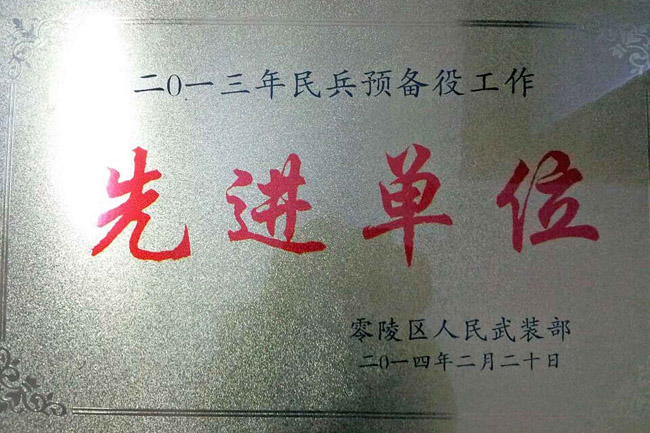 二0一三年民兵预备役工作
先进单位
零陵区人民武装部
二0一四年二月二十日